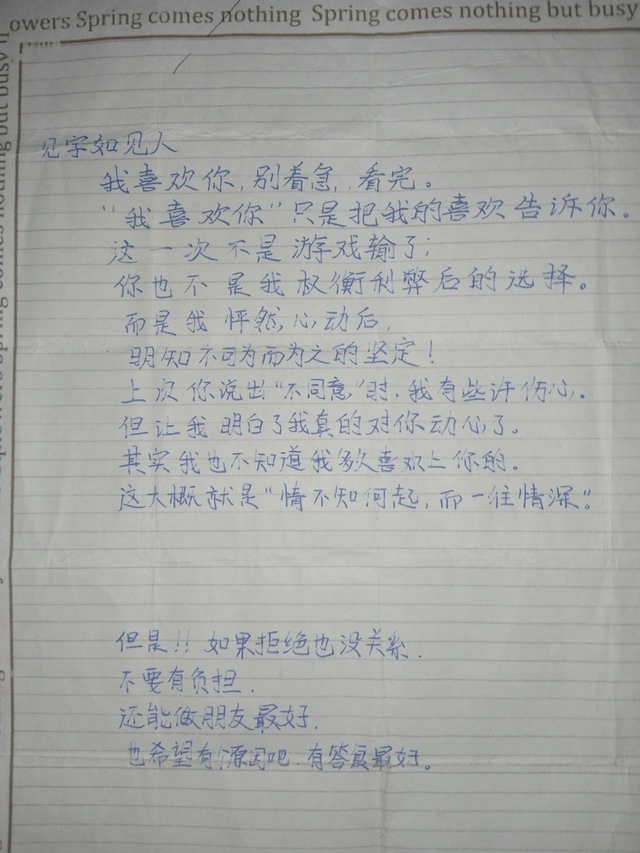 owers Spring comes nothing Spring comes nothing but busy
见字如见人
我喜欢你,别着急,看完。
“我喜欢你”只是把我的喜欢告诉你。
这一次不是游戏输了;
你也不是我权衡利弊后的选择。
而是我怦然心动后,
明知不可为而为之的坚定!
上次你说出“不同意”时,我有些许伤心。
但让我明白了我真的对你动心了。
其实我也不知道我多久喜欢上你的。
这大概就是“情不知何起,而一往情深”。
但是!!如果拒绝也没关系.
不要有负担.
还能做朋友最好.
也希望有原因吧.有答复最好。